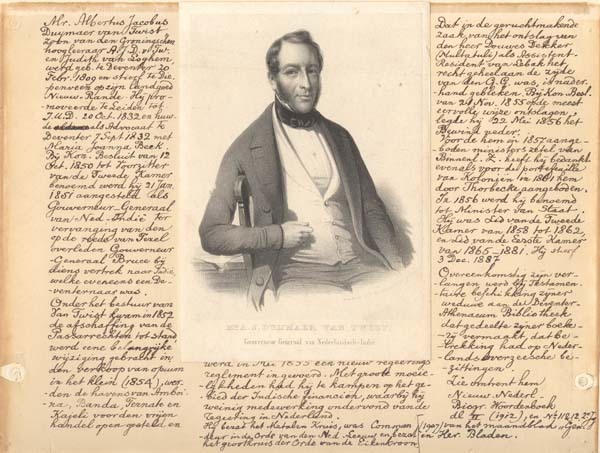 Mr. Albertus Jacobus
Duymaer van Twist
zoon van den Groningschen
hoogleeraar A. J. D. v. Tw.
en Judith van Loghem
werd geb. te Deventer 20
Febr. 1809 en stierf te Die-
penveen op zijn landgoed
Nieuw-Rande. Hij pro-
moveerde te Leiden tot
J.U.D. 20 Oct. 1832 en huw.
de als Advocaat te
Deventer 7 Sept 1832 met
Maria Joanna Beck.
Bij Kon. Besluit van 12
Oct. 1850 tot Voorzitter
van de Tweede Kamer
benoemd werd hij 21 Jan.
1851 aangesteld als
Gouverneur-Generaal
van Ned-Indië ter
vervanging van den
op de reede van Texel
overleden Gouverneur-
Generaal Bruce bij
diens vertrek naar Indië,
welke eveneens een De-
venternaar was.
Onder het bestuur van
Van Twist kwam in 1852
de afschaffing van de
Passarrechten tot stand
werd eene belangrijke
wijziging gebracht in
den verkoop van opium
in het klein (1854), wer-
den de havens van Amboi-
na, Banda, Ternate en
Kajeli voor den vrijen
handel open gesteld en
MR. A. J. DUYMAER VAN TWIST,
Gouverneur Generaal van Nederlandsch-Indië
werd in Mei 1855 een nieuw regeerings
reglement in gevoerd. Met groote moeie-
lijkheden had hij te kampen op het ge-
bied der Indische financien, waarbij hij
weinig medewerking ondervond van de
regeering in Nederland.
Hij bezat het Metalen Kruis, was Comman
deur in de Orde van den Ned. Leeuw en bezat
het grootkruis der Orde van de Eikenkroon
Dat in de geruchtmakende
zaak van het ontslag van
den heer Douwes Dekker
(Multatuli) als Assistent-
Resident van Lebak het
recht geheel aan de zijde
van den G.G. was, is nader-
hand gebleken. Bij Kon. Besl.
van 24 Nov. 1855 op de meest
eervolle wijze ontslagen,
legde hij 22 Mei 1856 het
Bewind neder.
Voor de hem in 1857 aange-
boden ministerszetel van
Binnenl. Z. heeft hij bedankt
evenals voor de portefeuille
van Koloniën in 1861 hem
door Thorbecke aangeboden.
In 1856 werd hij benoemd
tot Minister van Staat.
Hij was Lid van de Tweede
Kamer van 1858 tot 1862,
en Lid van de Eerste Kamer
van 1865-1881. Hij stierf
3 Dez. 1887
Overeenkomstig zijn ver-
langen werd bij Testamen-
taire beschikking zijner
weduwe aan de Deventer-
Athenaeum Bibliotheek
dat gedeelte zijner boeke-
rij vermaakt, dat be-
trekking had op Neder-
lands overzeesche be-
zittingen.
Zie Omtrent hem
Nieuw Nederl.
Biogr. Woordenboek
dl II (1912), en
(1907) van het maandblad
en Her. Bladen.